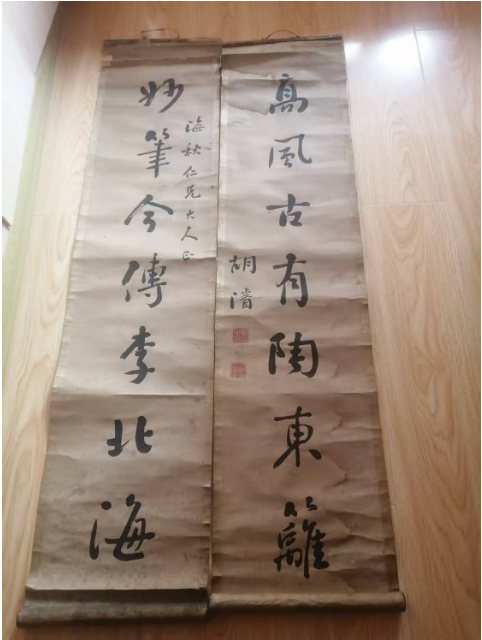 高風古有陶東籬
胡濬
海秋仁兄大人正
妙筆今傳李北海